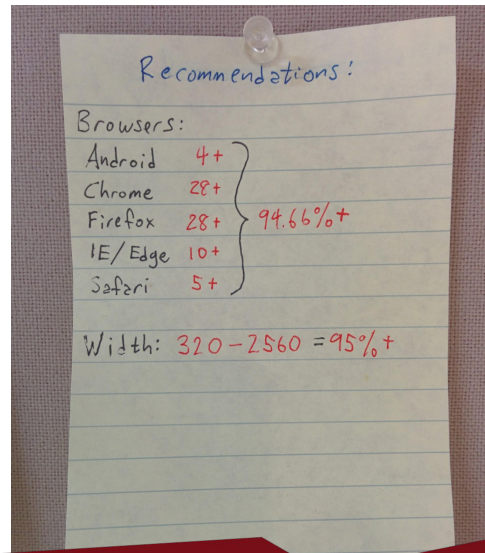 Recommendations:
Browsers:
Android 4+
Chrome 28+
Firefox 28+ 94.66%+
IE/Edge 10+
Safari 5+
Width: 320-2560 = 95%+